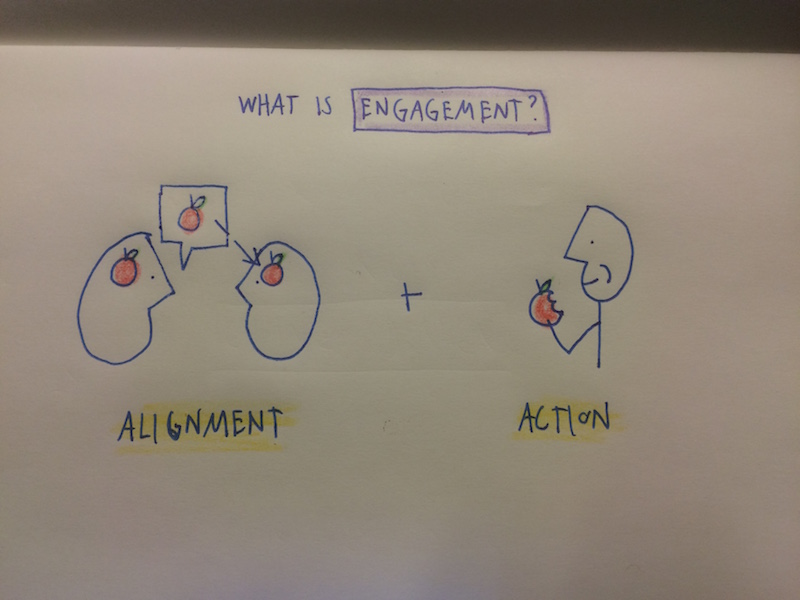 WHAT IS ENGAGEMENT?
+
ALIGNMENT
ACTION